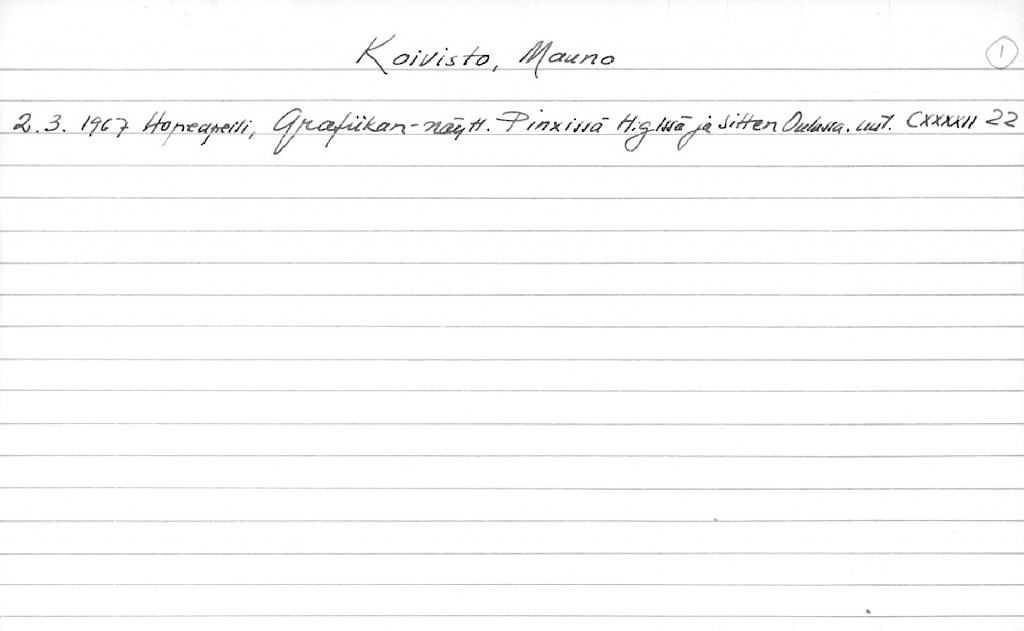 Koivisto, Mauno 1
2.3. 1967 Hopeapeili, Grafiikan-näytt. Pinxissä H:gissä ja sitten Oulussa. CXXXXII 22